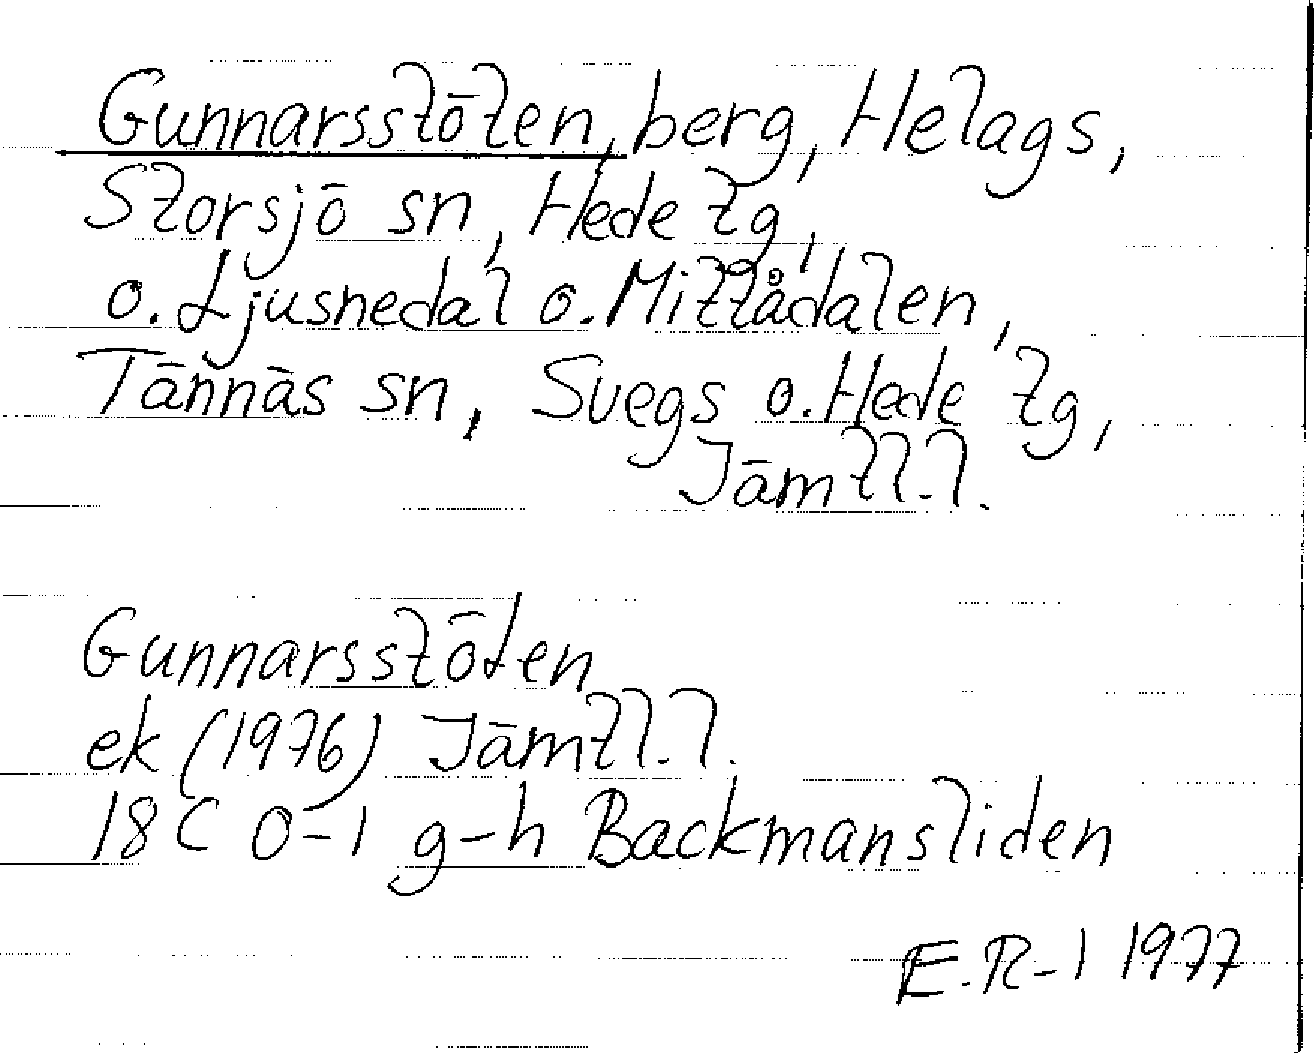 Gunnarsstöten, berg, Helags,
Storsjö sn, Hede tg,
o. Ljusnedal o. Mittådalen,
Tännäs sn, Svegs o. Hede tg,
Jämtl. l.
Gunnarsstöten
ek (1976) Jämtl. l.
18C 0-1 g-h Backmansliden
E. R-l 1977